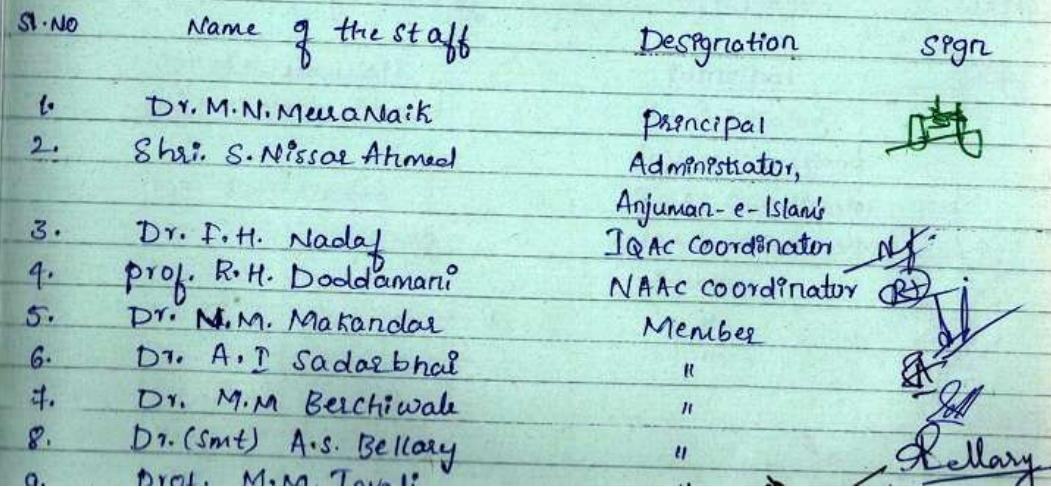 Sl.No Name of the staff Designation Sign
1. Dr. M.N. MeeraNaik Principal
2. Shri. S. Nissar Ahmed Administrator,
Anjuman-e-Islam's
3. Dr. I.H. Nadaf IQAC coordinator
4. prof. R.H. Doddamani NAAC coordinator
5. Dr. N.M. Makandar Member
6. Dr. A.I Sadarbhai "
7. Dr. M.M Berchiwale "
8. Dr. (Smt) A.S. Bellary " Bellary
9. Prof. M.M. "